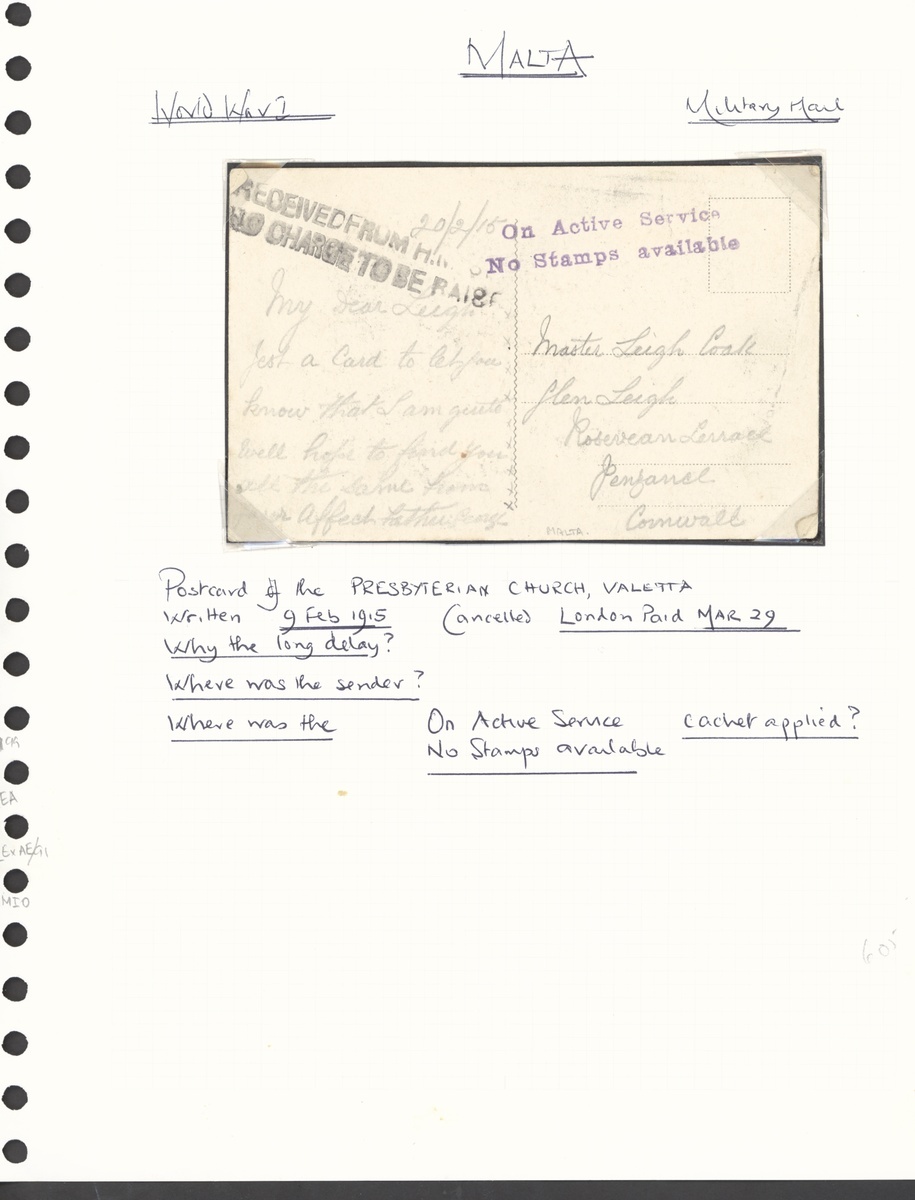 MALTA
World War I
Military Mail
RECEIVED FROM H.
NO CHARGE TO BE RAISE
20/2/15
On Active Service
No Stamps available
My Dear Leigh
Just a Card to let you
know that I am quite
Well hope to find you
all the same from
your Affect Father
Master Leigh Coak
Glen Leigh
Rosevean Terrace
Penzance
Cornwall
MALTA.
Postcard of the PRESBYTERIAN CHURCH, VALETTA
Written 9 Feb 1915 Cancelled London Paid MAR 29
Why the long delay?
Where was the sender?
Where was the On Active Service cachet applied?
No Stamps available
EA
MIO